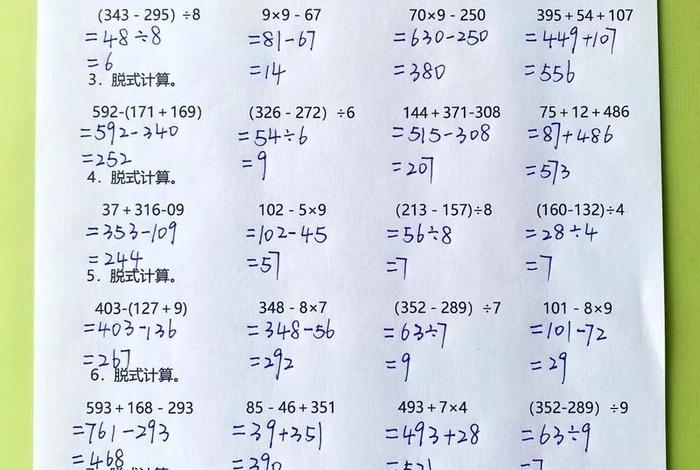 (343 - 295) ÷8 9×9 - 67 70×9 - 250 395 + 54 + 107
=48÷8 =81-67 =630-250 =449+107
=6 =14 =380 =556
3. 脱式计算。
592-(171 + 169) (326 - 272) ÷6 144 + 371-308 75 + 12 + 486
=592-340 =54÷6 =515-308 =87+486
=252 =9 =207 =573
4. 脱式计算。
37 + 316-09 102 - 5×9 (213 - 157)÷8 (160-132)÷4
=353-109 =102-45 =56÷8 =28÷4
=244 =57 =7 =7
5. 脱式计算。
403-(127 + 9) 348 - 8×7 (352 - 289) ÷7 101 - 8×9
=403-136 =348-56 =63÷7 =101-72
=267 =292 =9 =29
6. 脱式计算。
593 + 168 - 293 85 - 46 + 351 493 + 7×4 (352-289) ÷9
=761-293 =39+351 =493+28 =63÷9
=468 =390 =521 =7
脱式计算。